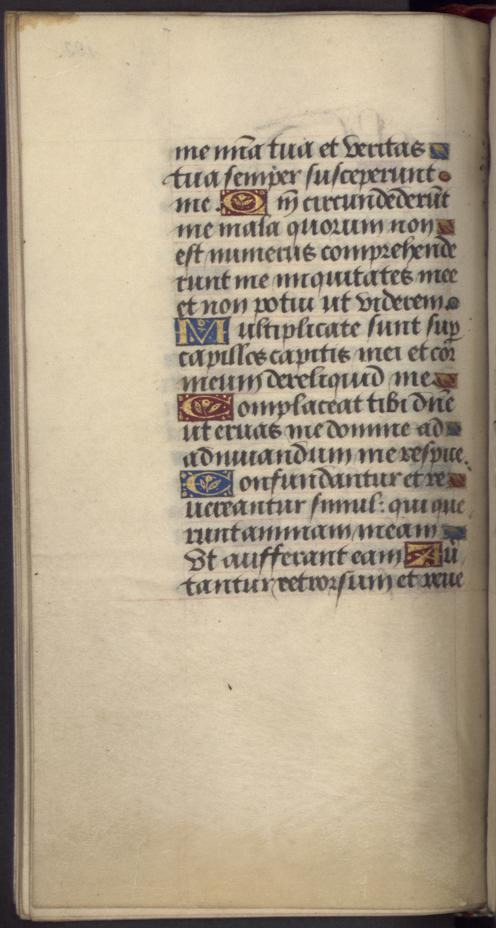 me mīa tua et veritas
tua semper susceperunt
me Q m̄ circundederūt
me mala quorum non
est numerus comprehende
runt me iniquitates mee
et non potui ut viderem
Multiplicate sunt sup̄
capillos capitis mei et cor̄
meum dereliquid me
Complaceat tibi dn̄e
ut eruas me domine ad
adiuuandum me respice
Confundantur et re
uereantur simul: qui que
runt animam meam
Vt aufferant eam Aū
tantur retrorsum et reue